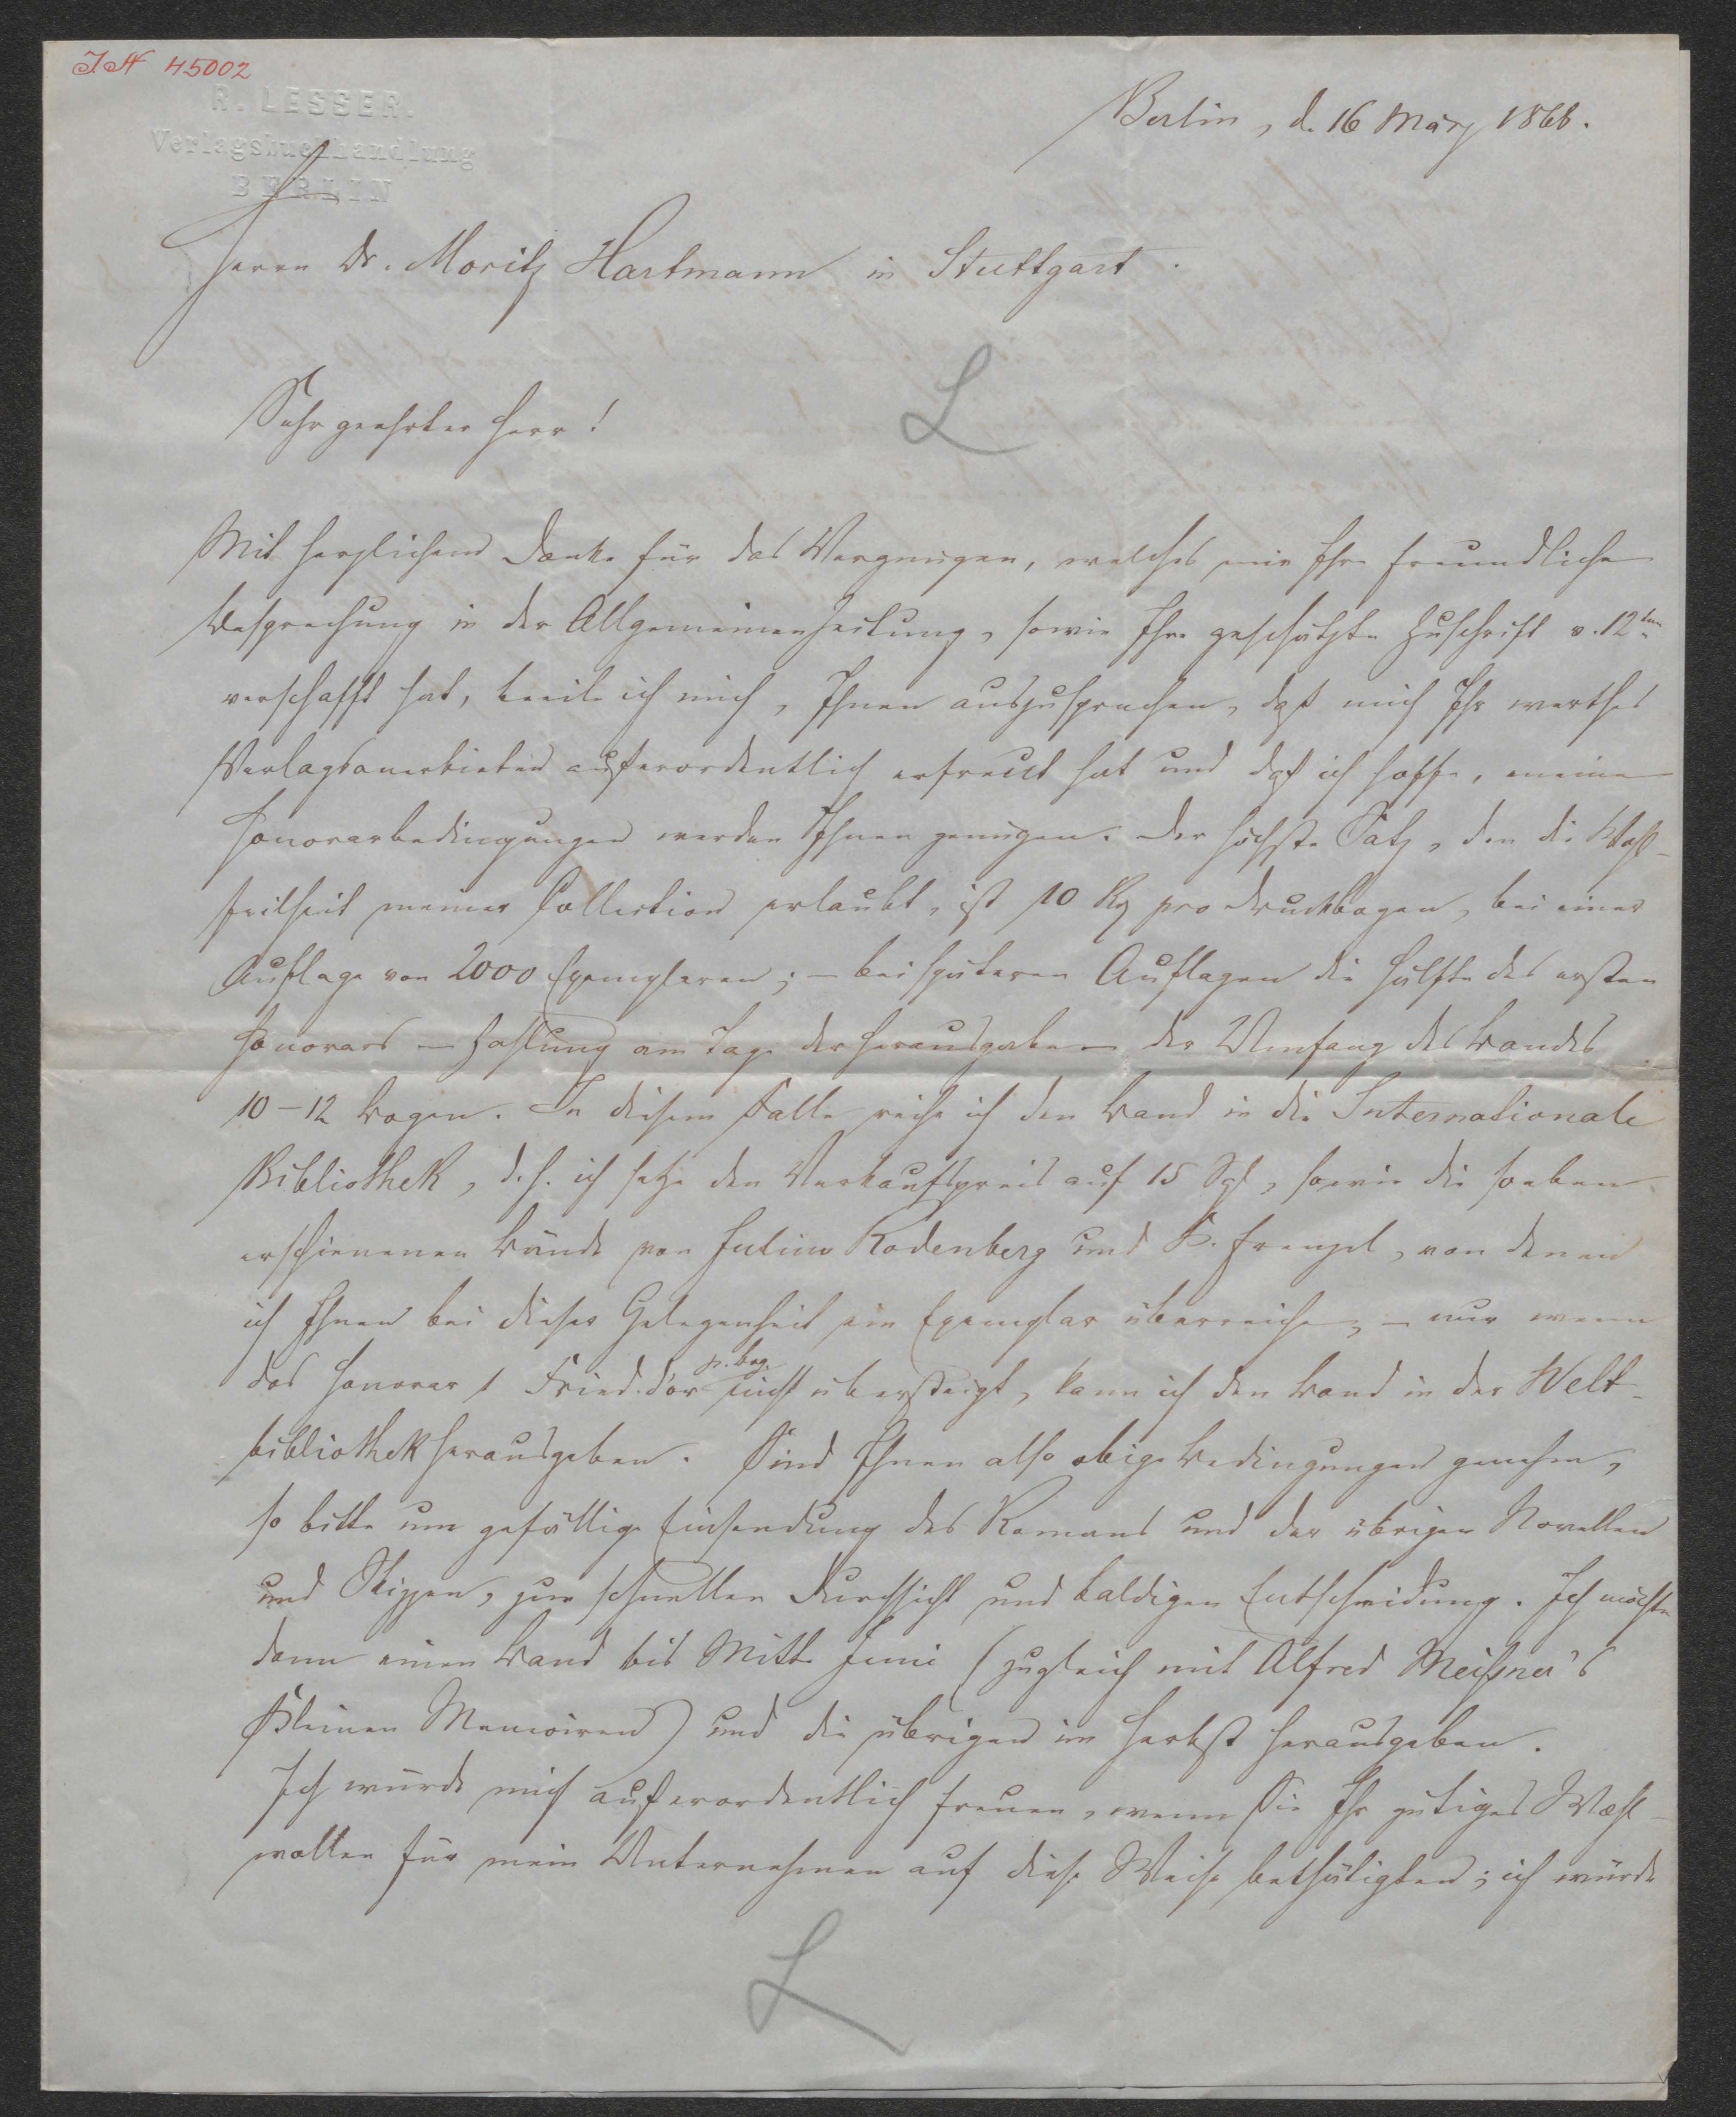 I.N 45002
R. LESSER.
Verlagsbuchhandlung
BERLIN
Berlin, d. 16 März 1866.
Herrn Dr. Moritz Hartmann in Stuttgart.
L
Sehr geehrter Herr!
Mit herzlichem Danke für das Vergnügen, welches mir Ihre freundliche
Besprechung in der Allgemeinen Zeitung, sowie Ihre geschätzte Zuschrift v. 12ten
verschafft hat, beeile ich mich, Ihnen auszusprechen, daß mich Ihr werthes
Verlagsanerbieten außerordentlich erfreut hat und daß ich hoffe, meine
Honorarbedingungen werden Ihnen genügen. Der höchste Satz, den die Wohl-
feilheit meiner Collection erlaubt, ist 10 Rg pro Druckbogen, bei einer
Auflage von 2000 Exemplaren; – bei späteren Auflagen die Hälfte des ersten
Honorars – Zahlung am Tage der Herausgabe – der Umfang des Bandes
10–12 Bogen. In diesem Falle reihe ich den Band in die Internationale
Bibliothek, d.h. ich setze den Verkaufspreis auf 15 Sgl, sowie die soeben
erschienenen Bände von Julius Rodenberg und K. Frenzel, von denen
ich Ihnen bei dieser Gelegenheit ein Exemplar überreiche, – nur wenn
das Honorar 1 Fried.d'or p. Bog. nicht übersteigt, kann ich den Band in der Welt-
bibliothek herausgeben. Sind Ihnen also obige Bedingungen genehm,
so bitte um gefällige Einsendung des Romans und der übrigen Novellen
und Skizzen, zur schnellen Durchsicht und baldigen Entscheidung. Ich möchte
dann einen Band bis Mitte Juni (zugleich mit Alfred Meißner's
Kleinen Memoiren) und die übrigen im Herbst herausgeben.
Ich würde mich außerordentlich freuen, wenn Sie Ihr gütiges Wohl-
wollen für mein Unternehmen auf diese Weise bethätigten; ich würde
L